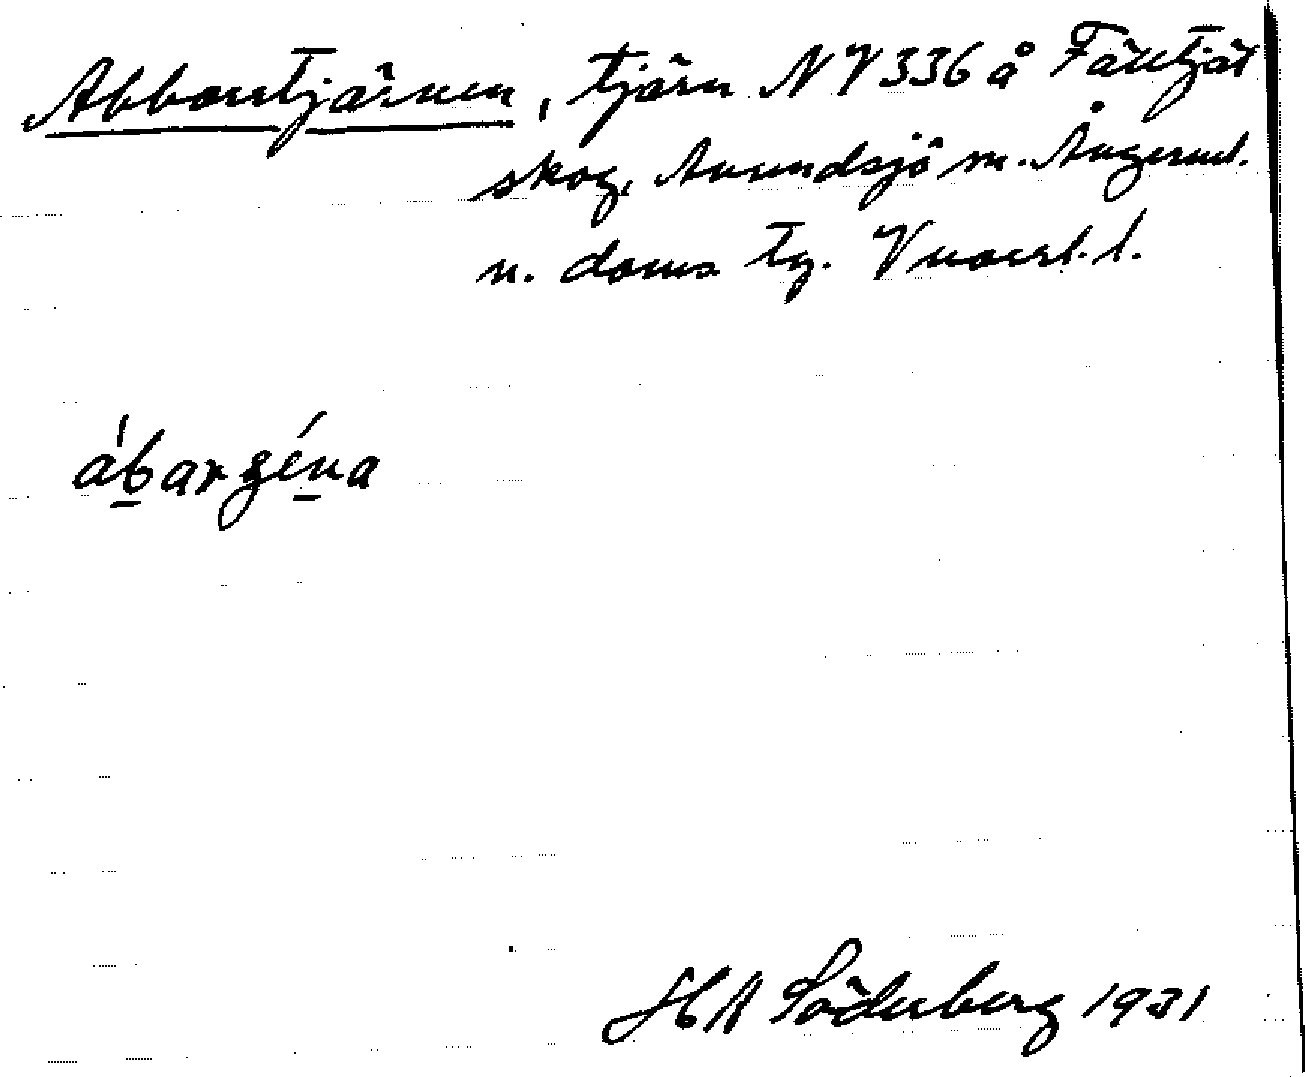 Abborrtjärnen, tjärn NV336 å Fättjär
skog, Anundsjö sn. Ångerml.
n. doms tg. Vnorrl. l.
ábargéna
HA Söderberg 1931